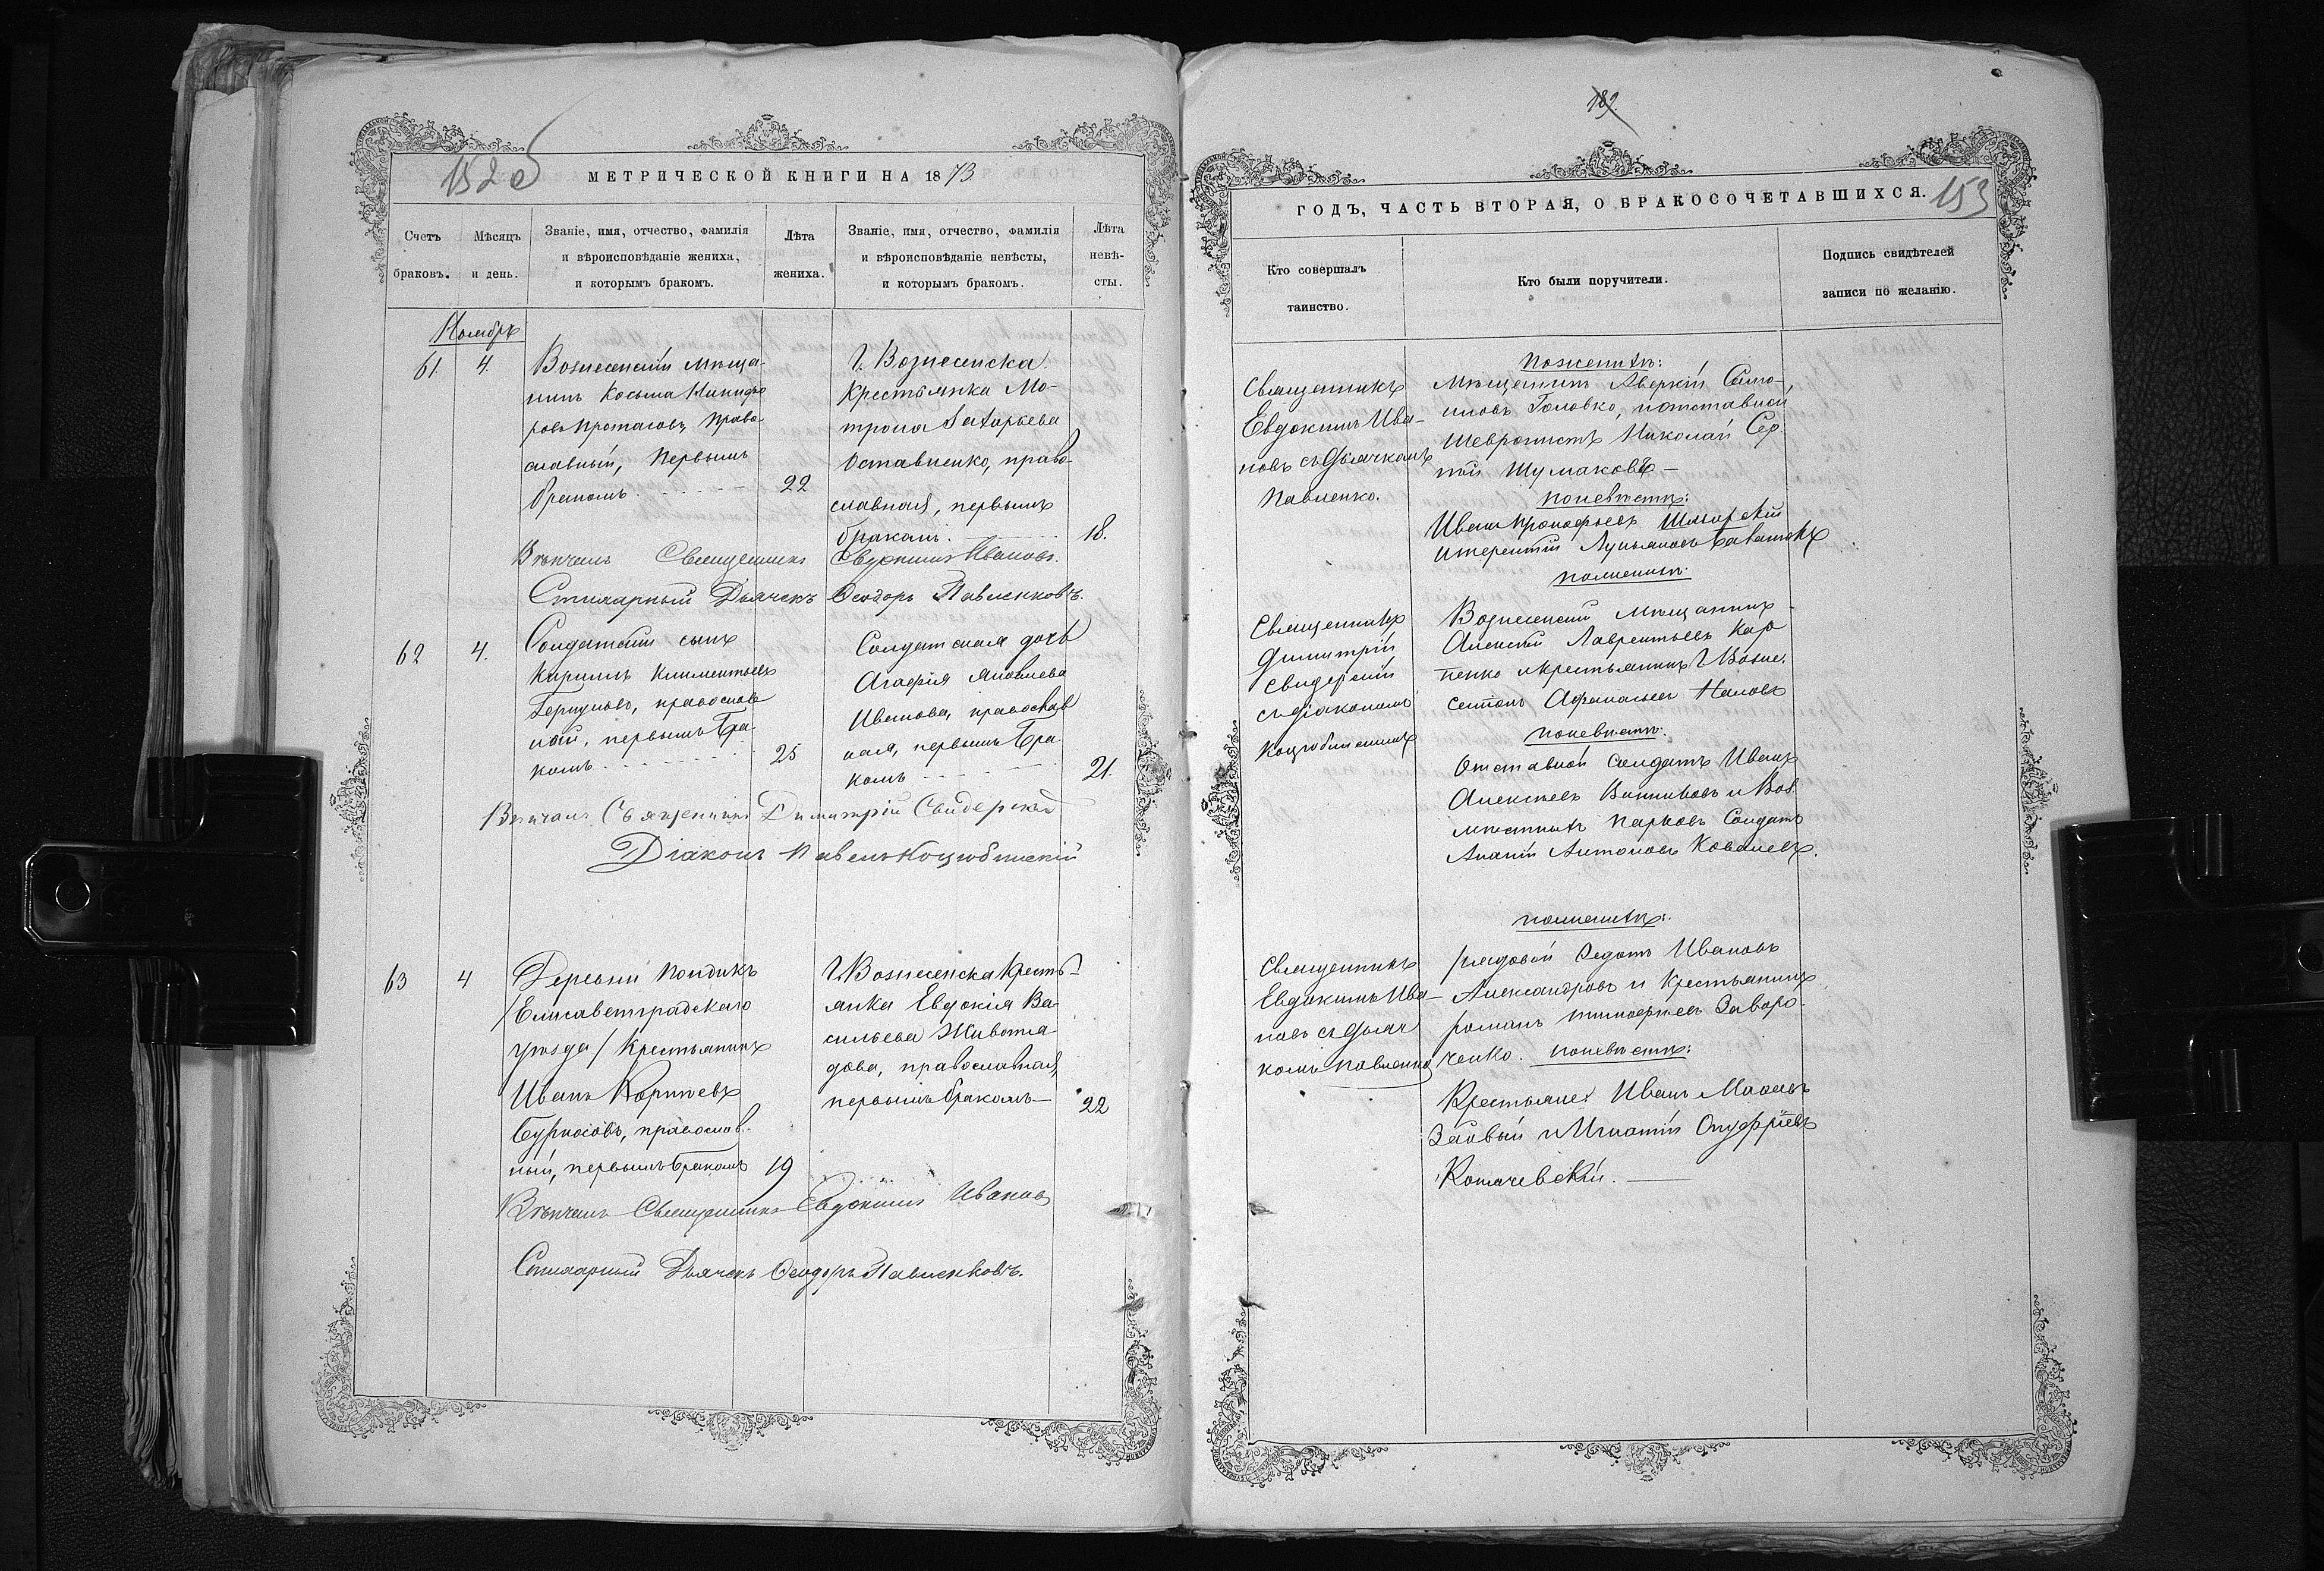 152 об
МЕТРИЧЕСКОЙ КНИГИ НА 1873
Счетъ браковъ.
Мѣсяцъ и день.
Званіе, имя, отчество, фамилія
и вѣроисповѣданіе жениха,
и которымъ бракомъ.
Лѣта
жениха.
Званіе, имя, отчество, фамилія
и вѣроисповѣданіе невѣсты,
и которымъ бракомъ.
Лѣта
невѣ-
сты.
Ноябрь
61.
4.
Вознесенскій мѣща-
нинъ Косьма Никифо
ровъ Протасовъ, право
славный, первымъ
бракомъ
22
Г. Вознесенска
крестьянка Ма-
трона Захарьева
Оставненко, право-
славная, первымъ
бракомъ.
18.
Вѣнчалъ Священникъ Евдокимъ Ивановъ.
Стихарный Дьячекъ Ѳеодоръ Павленковъ.
62
4.
Солдатскій сынъ
Кириллъ Климентьевъ
православ
ный, первымъ бра-
комъ
25
Солдатская дочь
Агафія Яковлева
Иванова, православ
ная, первымъ бра-
комъ
21.
Вѣнчалъ Священникъ Димитрій Свидерскій
Діаконъ Павелъ Коцюбинскій
63
4
Деревни Пондикъ
/Елисаветградскаго
уѣзда/ крестьянинъ
Иванъ Корнѣевъ
Бурносовъ, православ-
ный, первымъ бракомъ
19
Г. Вознесенска кресть-
янка Евдокія Ва-
сильева Живота-
дова, православная,
первымъ бракомъ
22
Вѣнчалъ Священникъ Евдокимъ Ивановъ
Стихарный Дьячекъ Ѳеодоръ Павленковъ.
189.
ГОДЪ, ЧАСТЬ ВТОРАЯ, О БРАКОСОЧЕТАВШИХСЯ.
153
Кто совершалъ
таинство.
Кто были поручители.
Подпись свидѣтелей
записи по желанію.
Священникъ
Евдокимъ Ива-
новъ съ дьячкомъ
Павленко.
По женихѣ:
Мѣщанинъ Аверкій Само-
иловъ Головко, и отставной
Шевронистъ Николай Сер-
гѣй Шумаковъ
по невѣстѣ:
Иванъ Прокофьевъ
и Терентій Лукьяновъ
по женихѣ:
Священникъ
Димитрій
Свидерскій
съ діакономъ
Коцюбинскимъ
Вознесенскій мѣщанинъ
Алексѣй Лаврентьевъ Кар
пенко и крестьянинъ Г. Возне-
Афанасьевъ
по невѣстѣ:
Отставной солдатъ Иванъ
Алексѣевъ Винниковъ и Воз.
мѣстныхъ парковъ Солдатъ
Ананій Антоновъ Ковалевъ.
по женихѣ:
Священникъ
Евдокимъ Ива-
новъ съ дьяч
комъ Павленко
рядовой Ѳедотъ Ивановъ
Александровъ и крестьянинъ
романъ тимофѣевъ Заворо-
ченко. по невѣстѣ:
Крестьяне: Иванъ
и Игнатій Онуфріевъ